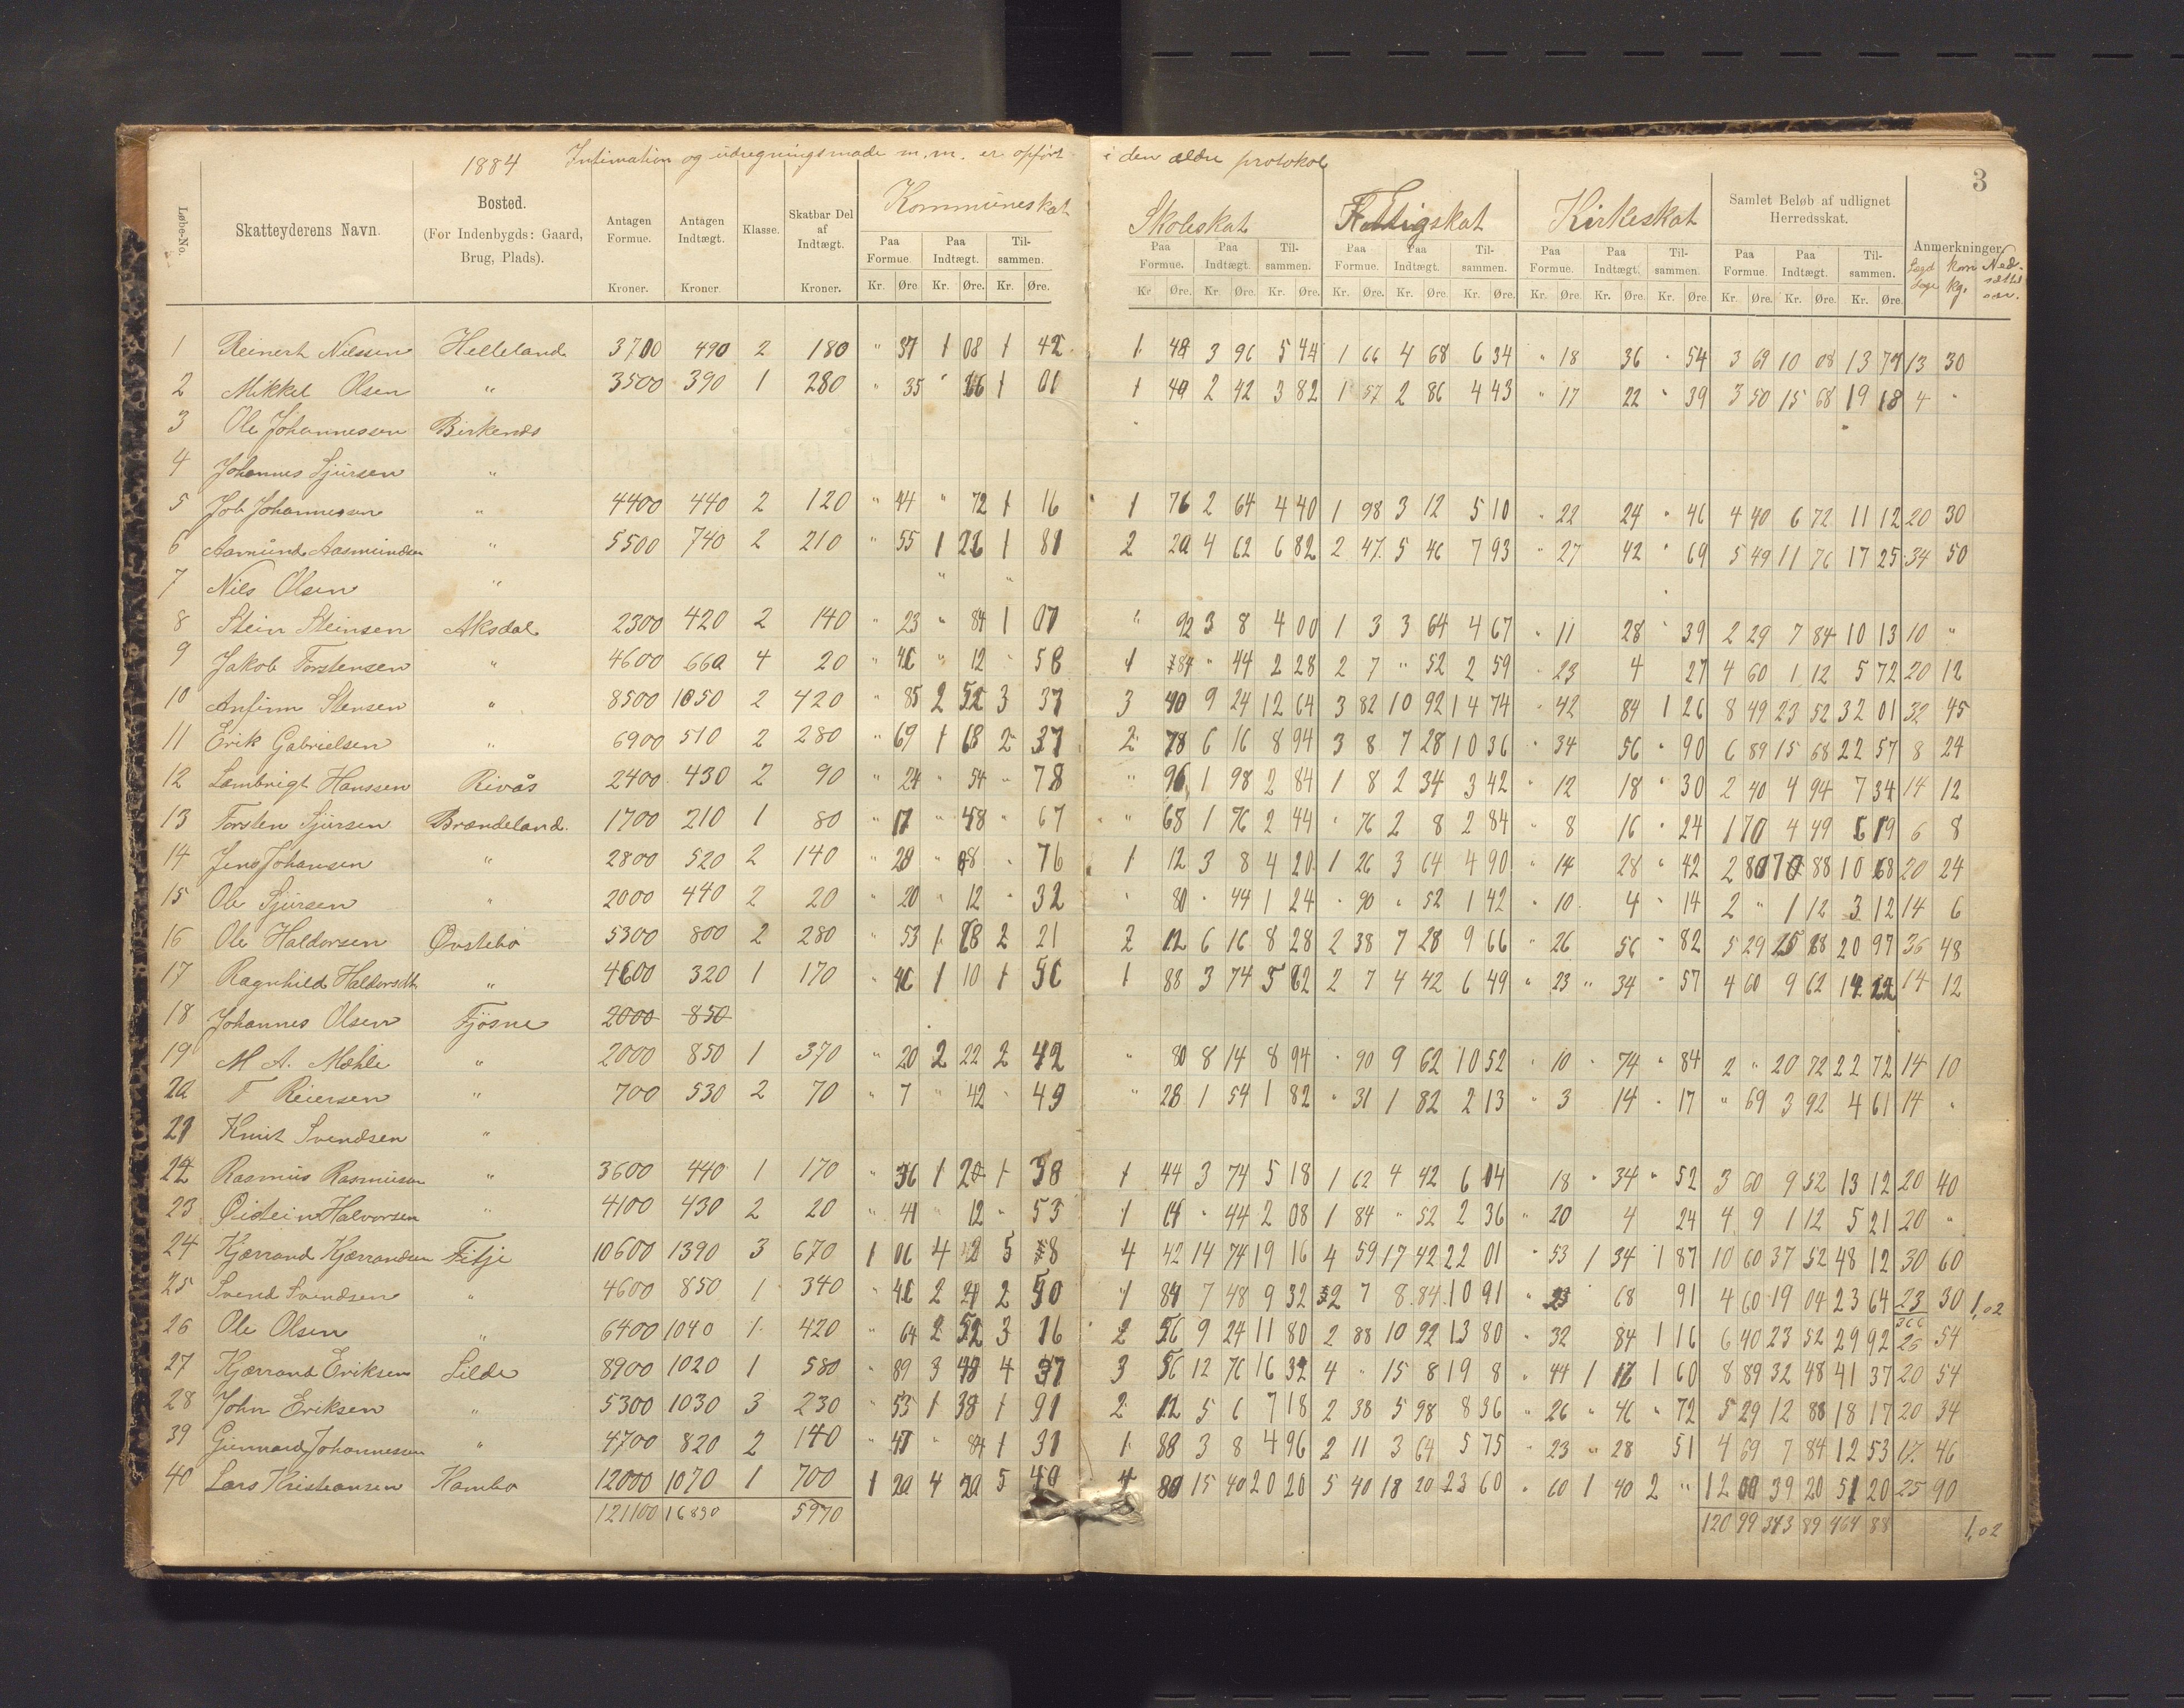 1884 Intimation og udregningsmade m.m. er opført i den ældre protokol
3
Løbe-No. Skatteyderens Navn. Bosted. (For Indenbygds: Gaard, Brug, Plads). Antagen Formue. Kroner. Antagen Indtægt. Kroner. Klasse. Skatbar Del af Indtægt. Kroner. Kommuneskat Skoleskat Fattigskat Kirkeskat Samlet Beløb af udlignet Herredsskat. Anmerkninger
Paa Formue. Paa Indtægt. Tilsammen. Paa Formue. Paa Indtægt. Tilsammen. Paa Formue. Paa Indtægt. Tilsammen. Paa Formue. Paa Indtægt. Tilsammen. Paa Formue. Paa Indtægt. Tilsammen.
Kr. Øre. Kr. Øre. Kr. Øre. Kr. Øre. Kr. Øre. Kr. Øre. Kr. Øre. Kr. Øre. Kr. Øre. Kr. Øre. Kr. Øre. Kr. Øre. Kr. Øre. Kr. Øre. Kr. Øre. korn kg.
1 Reinert Nilssen Helleland 3700 490 2 180 " 37 1 08 1 42 1 48 3 96 5 44 1 66 4 68 6 34 " 18 36 " 54 3 69 10 08 13 77 13 30
2 Mikkel Olsen " 3500 390 1 280 " 35 " 66 1 01 1 40 2 42 3 82 1 57 2 86 4 43 " 17 22 " 39 3 50 15 68 19 18 4 "
3 Ole Johannessen Birkenes
4 Johannes Sjursen "
5 Job Johannessen " 4400 440 2 120 " 44 " 72 1 16 1 76 2 64 4 40 1 98 3 12 5 10 " 22 24 " 46 4 40 6 72 11 12 20 30
6 Aamund Aasmundsen " 5500 740 2 210 " 55 1 26 1 81 2 20 4 62 6 82 2 47 5 46 7 93 " 27 42 " 69 5 49 11 76 17 25 34 50
7 Nils Olsen " " "
8 Stein Steinsen Aksdal 2300 420 2 140 " 23 " 84 1 07 " 92 3 8 4 00 1 3 3 64 4 67 " 11 28 " 39 2 29 7 84 10 13 10 "
9 Jakob Torstensen " 4600 660 4 20 " 46 " 12 " 58 1 84 " 44 2 28 2 7 " 52 2 59 " 23 4 27 4 60 1 12 5 72 20 12
10 Anfinn Stensen " 8500 1050 2 420 " 85 2 52 3 37 3 40 9 24 12 64 3 82 10 92 14 74 " 42 84 1 26 8 49 23 52 32 01 32 45
11 Erik Gabrielsen " 6900 510 2 280 " 69 1 68 2 37 2 78 6 16 8 94 3 8 7 28 10 36 " 34 56 " 90 6 89 15 68 22 57 8 24
12 Lambrigt Hanssen Rivås 2400 430 2 90 " 24 " 54 " 78 " 96 1 98 2 84 1 8 2 34 3 42 " 12 18 " 30 2 40 4 94 7 34 14 12
13 Torsten Sjursen Brandeland 1700 210 1 80 " 17 " 48 " 67 " 68 1 76 2 44 " 76 2 8 2 84 " 8 16 " 24 1 70 4 49 6 19 6 8
14 Jens Johansen " 2800 520 2 140 " 28 " 48 " 76 1 12 3 8 4 20 1 26 3 64 4 90 " 14 28 " 42 2 80 7 88 10 68 20 24
15 Ole Sjursen " 2000 440 2 20 " 20 " 12 " 32 " 80 " 44 1 24 " 90 " 52 1 42 " 10 4 " 14 2 " 1 12 3 12 14 6
16 Ole Haldorsen Øvstebø 5300 800 2 280 " 53 1 68 2 21 2 12 6 16 8 28 2 38 7 28 9 66 " 26 56 " 82 5 29 15 68 20 97 36 48
17 Ragnhild Haldorsdt " 4600 320 1 170 " 46 1 10 1 56 1 88 3 74 5 62 2 7 4 42 6 49 " 23 " 34 " 57 4 60 9 62 14 22 14 12
18 Johannes Olsen Fjøsne 2000 850
19 M A. Mæhle " 2000 850 1 370 " 20 2 22 2 42 " 80 8 14 8 94 " 90 9 62 10 52 " 10 " 74 " 84 2 " 20 72 22 72 14 10
20 T Reiersen " 700 530 2 70 " 7 " 42 " 49 " 28 1 54 1 82 " 31 1 82 2 13 " 3 14 " 17 " 69 3 92 4 61 14 "
21 Knut Svendsen "
22 Rasmus Rasmusen " 3600 440 1 170 " 36 1 20 1 38 1 44 3 74 5 18 1 62 4 42 6 04 18 " 34 " 52 3 60 9 52 13 12 20 40
23 Øistein Halvorsen " 4100 430 2 20 " 41 " 12 " 53 1 64 " 44 2 08 1 84 " 52 2 36 " 20 4 24 4 9 1 12 5 21 20 "
24 Kjærrand Kjærrandsen Fitje 10600 1390 3 670 1 06 4 02 5 08 4 42 14 74 19 16 4 59 17 42 22 01 " 53 1 34 1 87 10 60 37 52 48 12 30 60
25 Svend Svendsen " 4600 850 1 340 " 46 2 24 2 50 1 84 7 48 9 32 2 7 8 84 10 91 " 23 68 91 4 60 19 04 23 64 23 30 1,02
26 Ole Olsen " 6400 1040 1 420 " 64 2 52 3 16 2 56 9 24 11 80 2 88 10 92 13 80 " 32 84 1 16 6 40 23 52 29 92 26 54
27 Kjærrand Eriksen Lilde 8900 1020 1 580 " 89 3 48 4 37 3 56 12 76 16 32 4 " 15 8 19 8 " 44 1 16 1 60 8 89 32 48 41 37 20 54
28 John Eriksen " 5300 1030 3 230 " 53 1 38 1 91 2 12 5 6 7 18 2 38 5 98 8 36 " 26 " 46 " 72 5 29 12 88 18 17 20 34
39 Gunnard Johannessen " 4700 820 2 140 " 47 " 84 1 31 1 88 3 8 4 96 2 11 3 64 5 75 " 23 " 28 51 4 69 7 84 12 53 17 46
40 Lars Kristiansen Hambo 12000 1070 1 700 1 20 4 20 5 40 4 80 15 40 20 20 5 40 18 20 23 60 " 60 1 40 2 " 12 00 39 20 51 20 25 90
121100 16830 5970 120 99 343 89 464 88 1,02